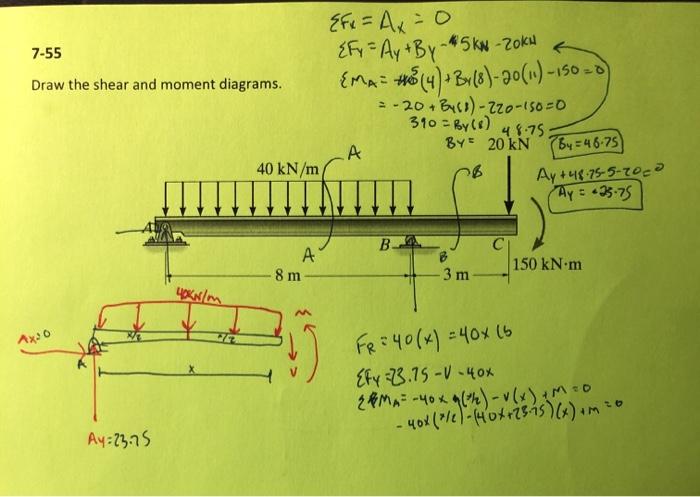 7-55
Draw the shear and moment diagrams.
ΣFx = Ax = 0
ΣFy = Ay + By - 5kN - 20kN
ΣMA = (4) + By(8) - 20(11) - 150 = 0
= -20 + By(8) - 220 - 150 = 0
390 = By(8)
48.75
By =
By = 48.75
Ay + 48.75 - 5 - 20 = 0
Ay = -23.75
20 kN
40 kN/m
A
B
A
A
B
B
C
8 m
3 m
150 kN·m
40kN/m
M
Ax=0
x/2
x/2
V
A
x
Ay=23.75
FR = 40(x) = 40x lb
ΣFy = 23.75 - V - 40x
MA = -40x (x/2) - V(x) + M = 0
-40x(x/2) - (40x+23.75)(x) + M = 0